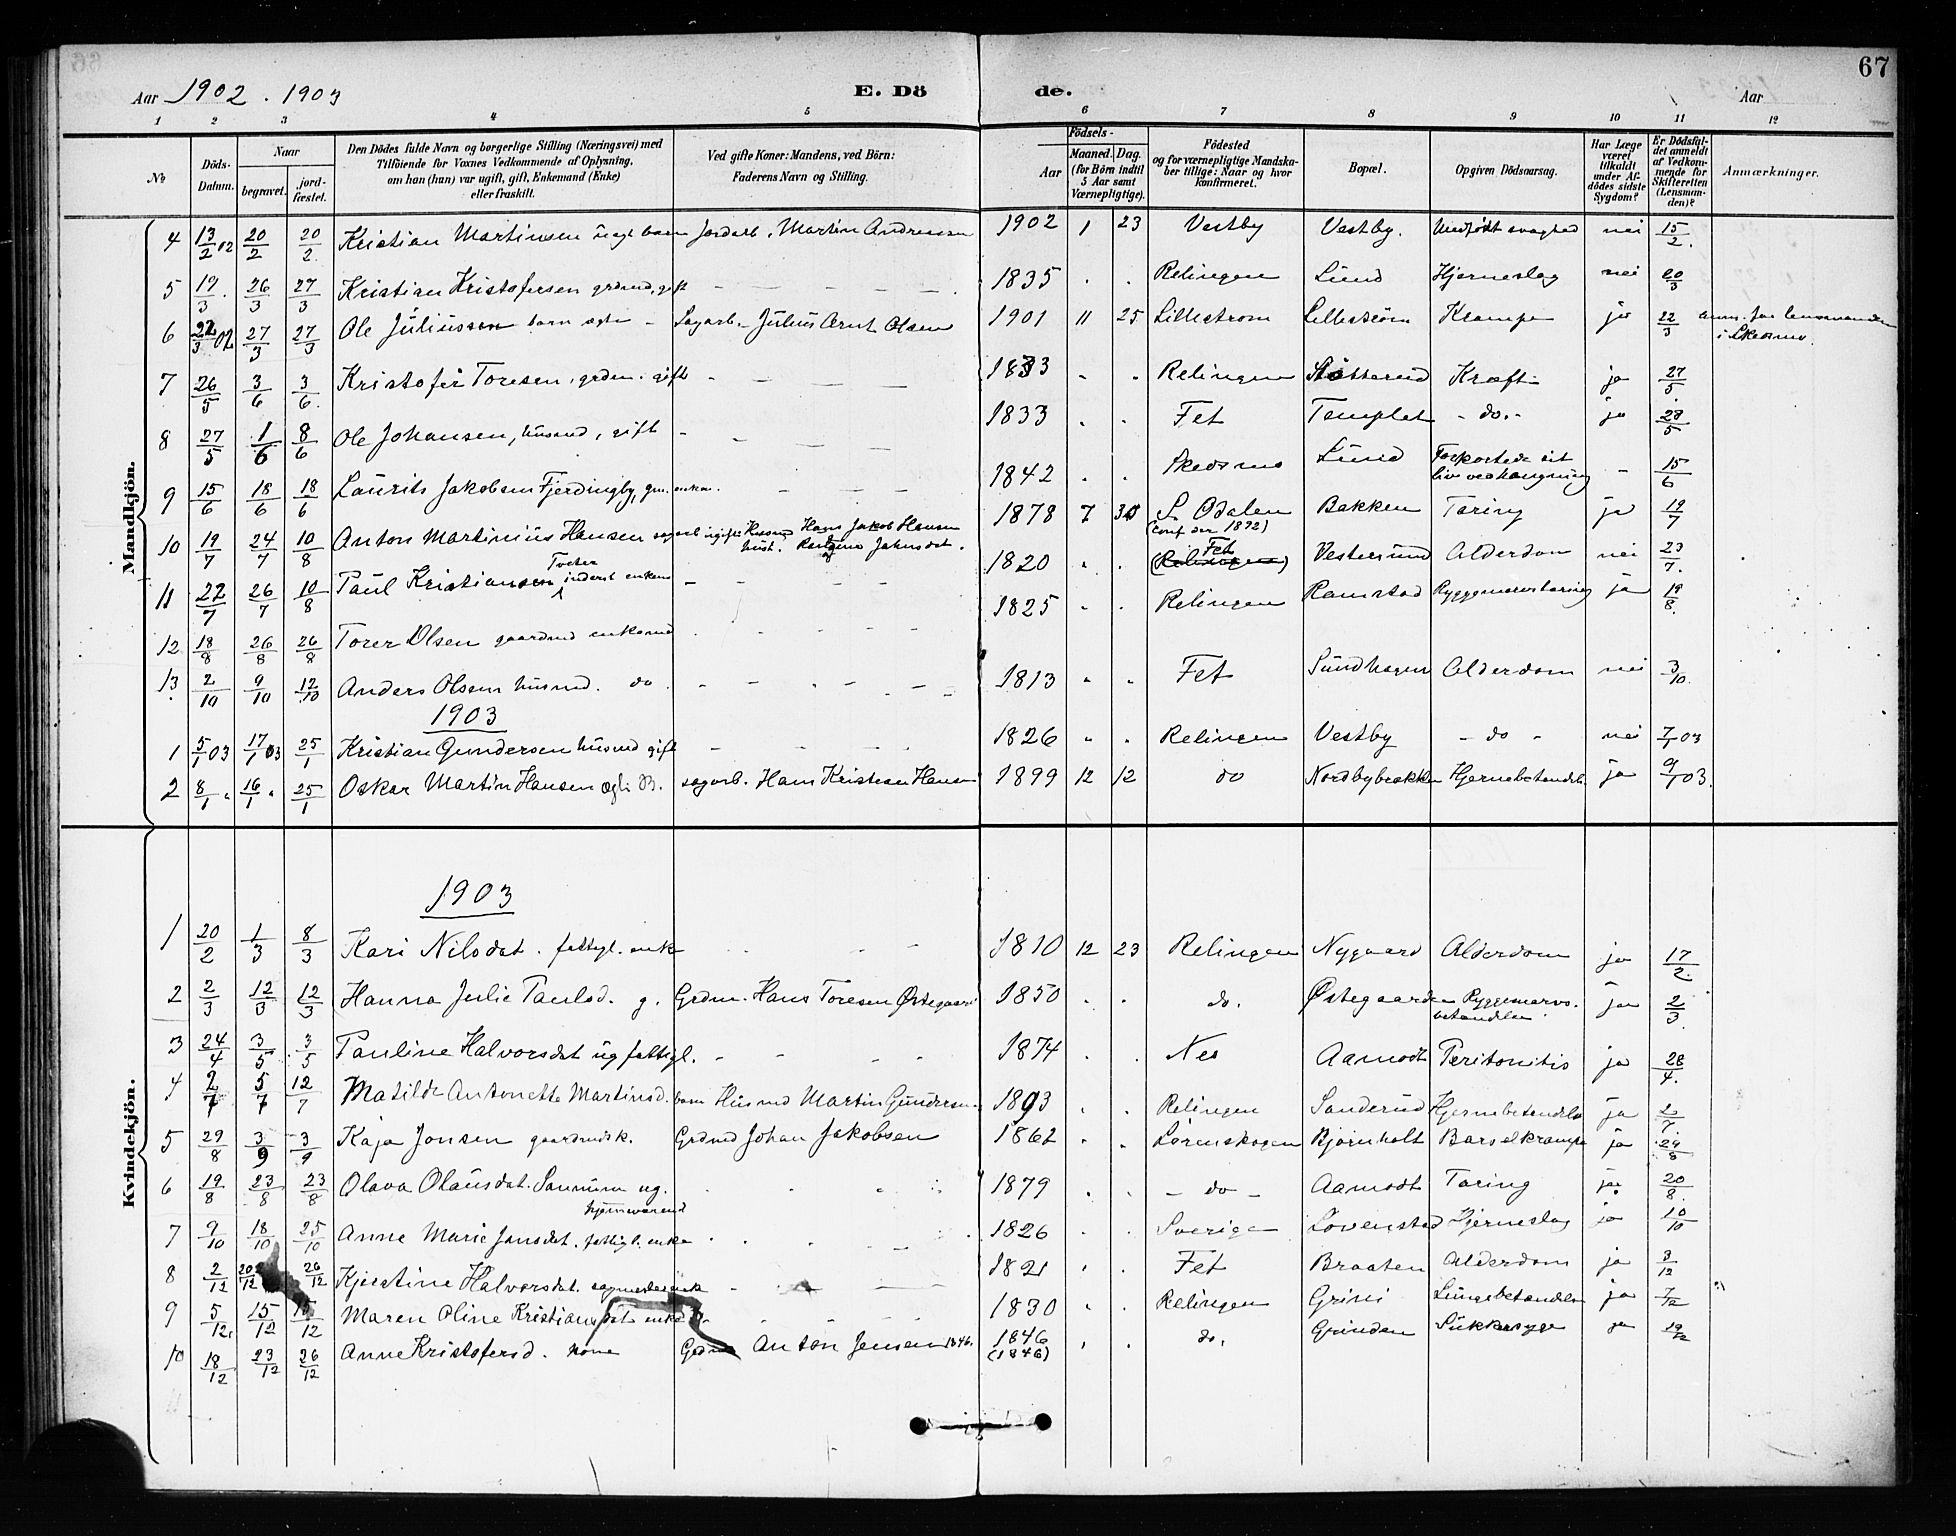 67
Aar 1902. 1903 E. Dö de. Aar
1 2 3 4 5 6 7 8 9 10 11 12
№ Döds-Datum. Naar begravet. jord-fæstet. Den Dödes fulde Navn og borgerlige Stilling (Næringsvei) med Tilföiende for Voxnes Vedkommende af Oplysning, om han (hun) var ugift, gift, Enkemand (Enke) eller fraskilt. Ved gifte Koner: Mandens, ved Börn: Faderens Navn og Stilling. Födsels- Aar Maaned. Dag. (for Börn indtil 5 Aar samt Værnepligtige). Födested og for værnepligtige Mandskaber tillige: Naar og hvor konfirmeret. Bopæl. Opgiven Dödsaarsag. Har Læge været tilkaldt under Afdödes sidste Sygdom? Er Dödsfaldet anmeldt af Vedkommende for Skifteretten (Lensmanden)? Anmærkninger.
Mandkjön.
4 13/2 02 20/2 20/2 Kristian Martinsen uægt barn Jordarb. Martin Andresen 1902 1 23 Vestby Vestby. Medfödt svaghed nei 15/2.
5 19/3 26/3 27/3 Kristian Kristofersen grdmd, gift 1835 Relingen Lund Hjerneslag nei 20/3
6 22/3 02 27/3 27/3 Ole Juliussen barn ægte Sagarb. Julius Arnt Olsen 1901 11 25 Lillestrøm Lillestrøm Krampe ja 22/3 anm. for lensmanden
i Skedsmo.
7 26/5 3/6 3/6. Kristofer Toresen, grdm. gift 1833 Relingen Kræft ja 27/5
8 27/5 1/6 8/6 Ole Johansen, husmd, gift 1833 Fet Templet - do. - ja 28/5
9 15/6 18/6 18/6 Laurits Jakobsen Fjerdingby, gm. enkem. 1842 Skedsmo Lund Forkortede sit
liv ved hængning - 15/6
10 19/7 24/7 10/8 Anton Martinius Hansen sagarb ugift Hans Jakob Hansen 1878 7 30 S. Odalen
(conf der 1892) Bakken Tæring ja 19/7
11 22/7 26/7 10/8 Paul Kristiansen Tveter inderst enkem 1820 (Relingen) Fet Vestersund Alderdom nei 23/7.
12 18/8 26/8 26/8 Torer Olsen gaardmd enkemd 1825 Relingen Ramstad Ryggmarvstæring ja 19/8
13 2/10 9/10 12/10 Anders Olsen husmd. do 1813 Fet Sundhagen Alderdom nei 3/10.
1903
1 5/1 03 17/1 03 25/1 Kristian Gundersen husmd gift 1826 Relingen Vestby - do - nei 7/1 03
2 8/1 " 16/1 " 25/1 Oskar Martin Hansen ægte B. sagarb. Hans Kristian Hansen 1899 12 12 do Nordbybakken Hjernebetændelse ja 9/1 03.
Kvindekjön.
1903
1 20/2 1/3 8/3 Kari Nilsdat. fattigl. enk 1810 12 23 Relingen Nygaard Alderdom ja 17/2.
2 2/3 12/3 12/3 Hanna Julie Paulsd. g. Grdm. Hans Toresen Østegaard 1850 do. Østegaarden Ryggemarvs-
betændelse ja 2/3.
3 24/4 3/5 3/5 Pauline Halvorsdat ug fattigl. 1874 Nes Aamodt Peritonitis ja 28/4.
4 2/7 5/7 12/7 Matilde Antonette Martinsd. barn Husmd Martin Gundersen 1893 Relingen Sanderud Hjernebetændelse ja 2/7
5 29/8 3/9 3/9 Kaja Jonsen gaardmdsk. Grdmd Johan Jakobsen 1862 Lørenskogen Bjørnholt Barselkrampe ja 29/8
6 19/8 23/8 23/8 Olava Olausdat. ug.
hjemmeværend 1879 - do - Aamodt Tæring ja. 20/8.
7 9/10 18/10 25/10 Anne Marie Jansdat. fattigl. enke 1826 Sverige Lovenstad Hjerneslag ja 10/10
8 2/12 20/12 26/12 Kjerstine Halvorsdat. enk 1821 Fet Braaten Alderdom ja 3/12
9 5/12 15/12 15/12 Maren Oline Kristiansdat enke 1830 Relingen Grini Lungebetændelse ja 7/12
10 18/12 23/12 26/12 Anne Kristofersd. kone Grdmd Anton Jensen 1846. 1846
(1846) do. Grinden Sukkersyge ja 19/12